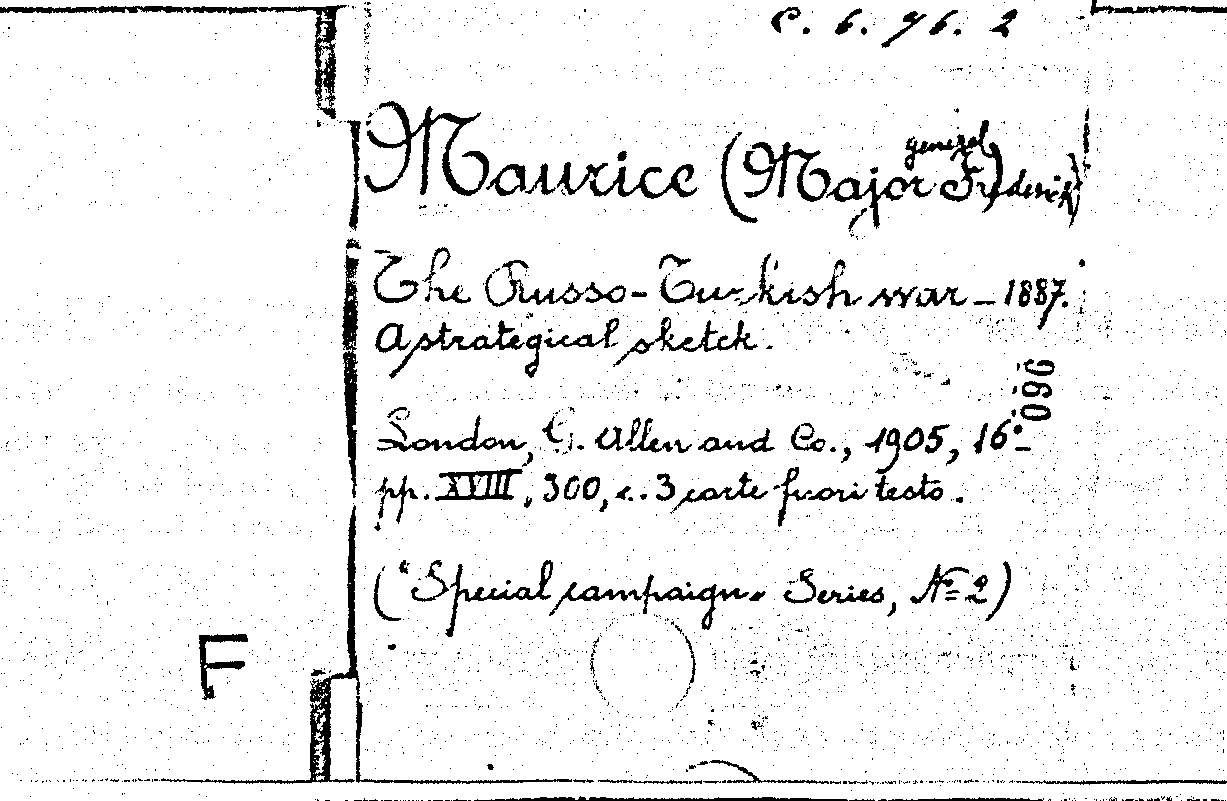 C. 6. 76. 2
Maurice (Major general Frederick)
The Russo-Turkish war – 1887.
A strategical sketck.
096
London, G. Allen and Co., 1905, 16°-
pp. XVIII, 300, c. 3 carte fuori testo.
("Special campaign" Series, Nº 2)
F